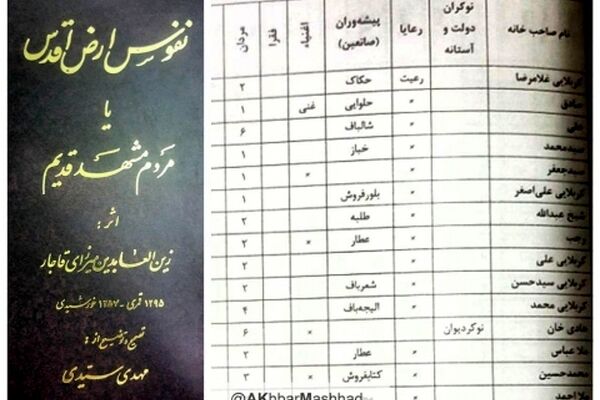 نفوس ارض اقدس
یا
مردم مشهد قدیم
اثر:
زین العابدین میرزای قاجار
۱۲۹۵ قمری - ۱۲۵۷ خورشیدی
تصحیح و توضیح از:
مهدی سیّدی
نام صاحب خانه نوکران دولت و آستانه رعایا پیشه‌وران (صانعین) اغنیاء فقرا مردان
کربلایی غلامرضا رعیت حکاک ۲
صادق " حلوایی غنی ۱
علی " شالباف ۶
سیدمحمد " خباز ۱
سیدجعفر " × ۱
کربلایی علی‌اصغر " بلورفروش ۱
شیخ عبدالله " طلبه ۲
رجب " عطار × ۲
کربلایی علی " ۲
کربلایی سیدحسن " شعرباف ۲
کربلایی محمد " الیجه‌باف ۴
هادی خان نوکردیوان × ۶
ملا عباس " عطار ۲
محمدحسین " کتابفروش × ۳
ملا احمد "
@AKhbarMashhad